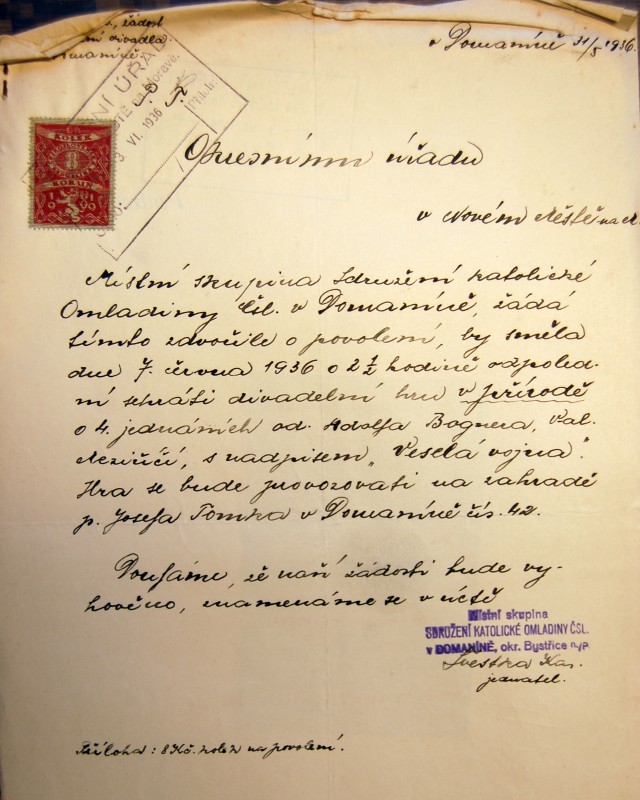 žádost
divadla
Domaníně.
v Domaníně 31/5 1936.
Okresnímu úřadu
v Novém Městě na M.
Místní skupina Sdružení katolické
Omladiny Čsl. v Domaníně, žádá
tímto zdvořile o povolení, by směla
dne 7. června 1936 o 2½ hodině odpoled-
ní sehráti divadelní hru v přírodě
o 4. jednáních od. Adolfa Bognera, Val.
Meziříčí, s nadpisem „Veselá vojna".
Hra se bude provozovati na zahradě
p. Josefa Tomka v Domaníně čís. 42.
Doufáme, že naší žádosti bude vy-
hověno, znamenáme se v úctě
Místní skupina
SDRUŽENÍ KATOLICKÉ OMLADINY ČSL.
v DOMANÍNĚ, okr. Bystřice n/P.
jednatel.
Příloha: 8 Kč. kolek na povolení.
KOLEK
8
KORUN
VI. 1936